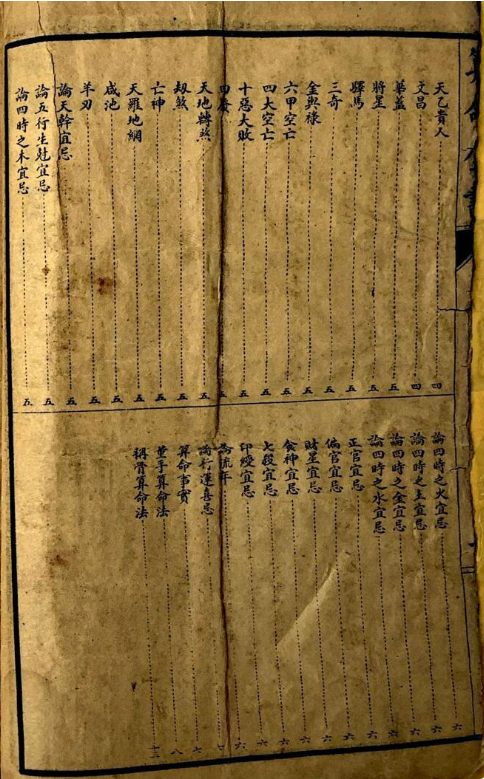 天乙貴人 四
文昌 四
華蓋 五
將星 五
驛馬 五
三奇 五
金輿祿 五
六甲空亡 五
四大空亡 五
十惡大敗 五
四廢 五
天地轉煞 五
刼煞 五
亡神 五
天羅地網 五
咸池 五
羊刃 五
論天幹宜忌 五
論五行生尅宜忌 五
論四時之木宜忌 五
論四時之火宜忌 六
論四時之土宜忌 六
論四時之金宜忌 六
論四時之水宜忌 六
正官宜忌 六
偏官宜忌 六
財星宜忌 六
食神宜忌 六
七殺宜忌 六
印綬宜忌 六
論流年
論行運喜忌
算命事實 八
手算命法
稱骨算命法